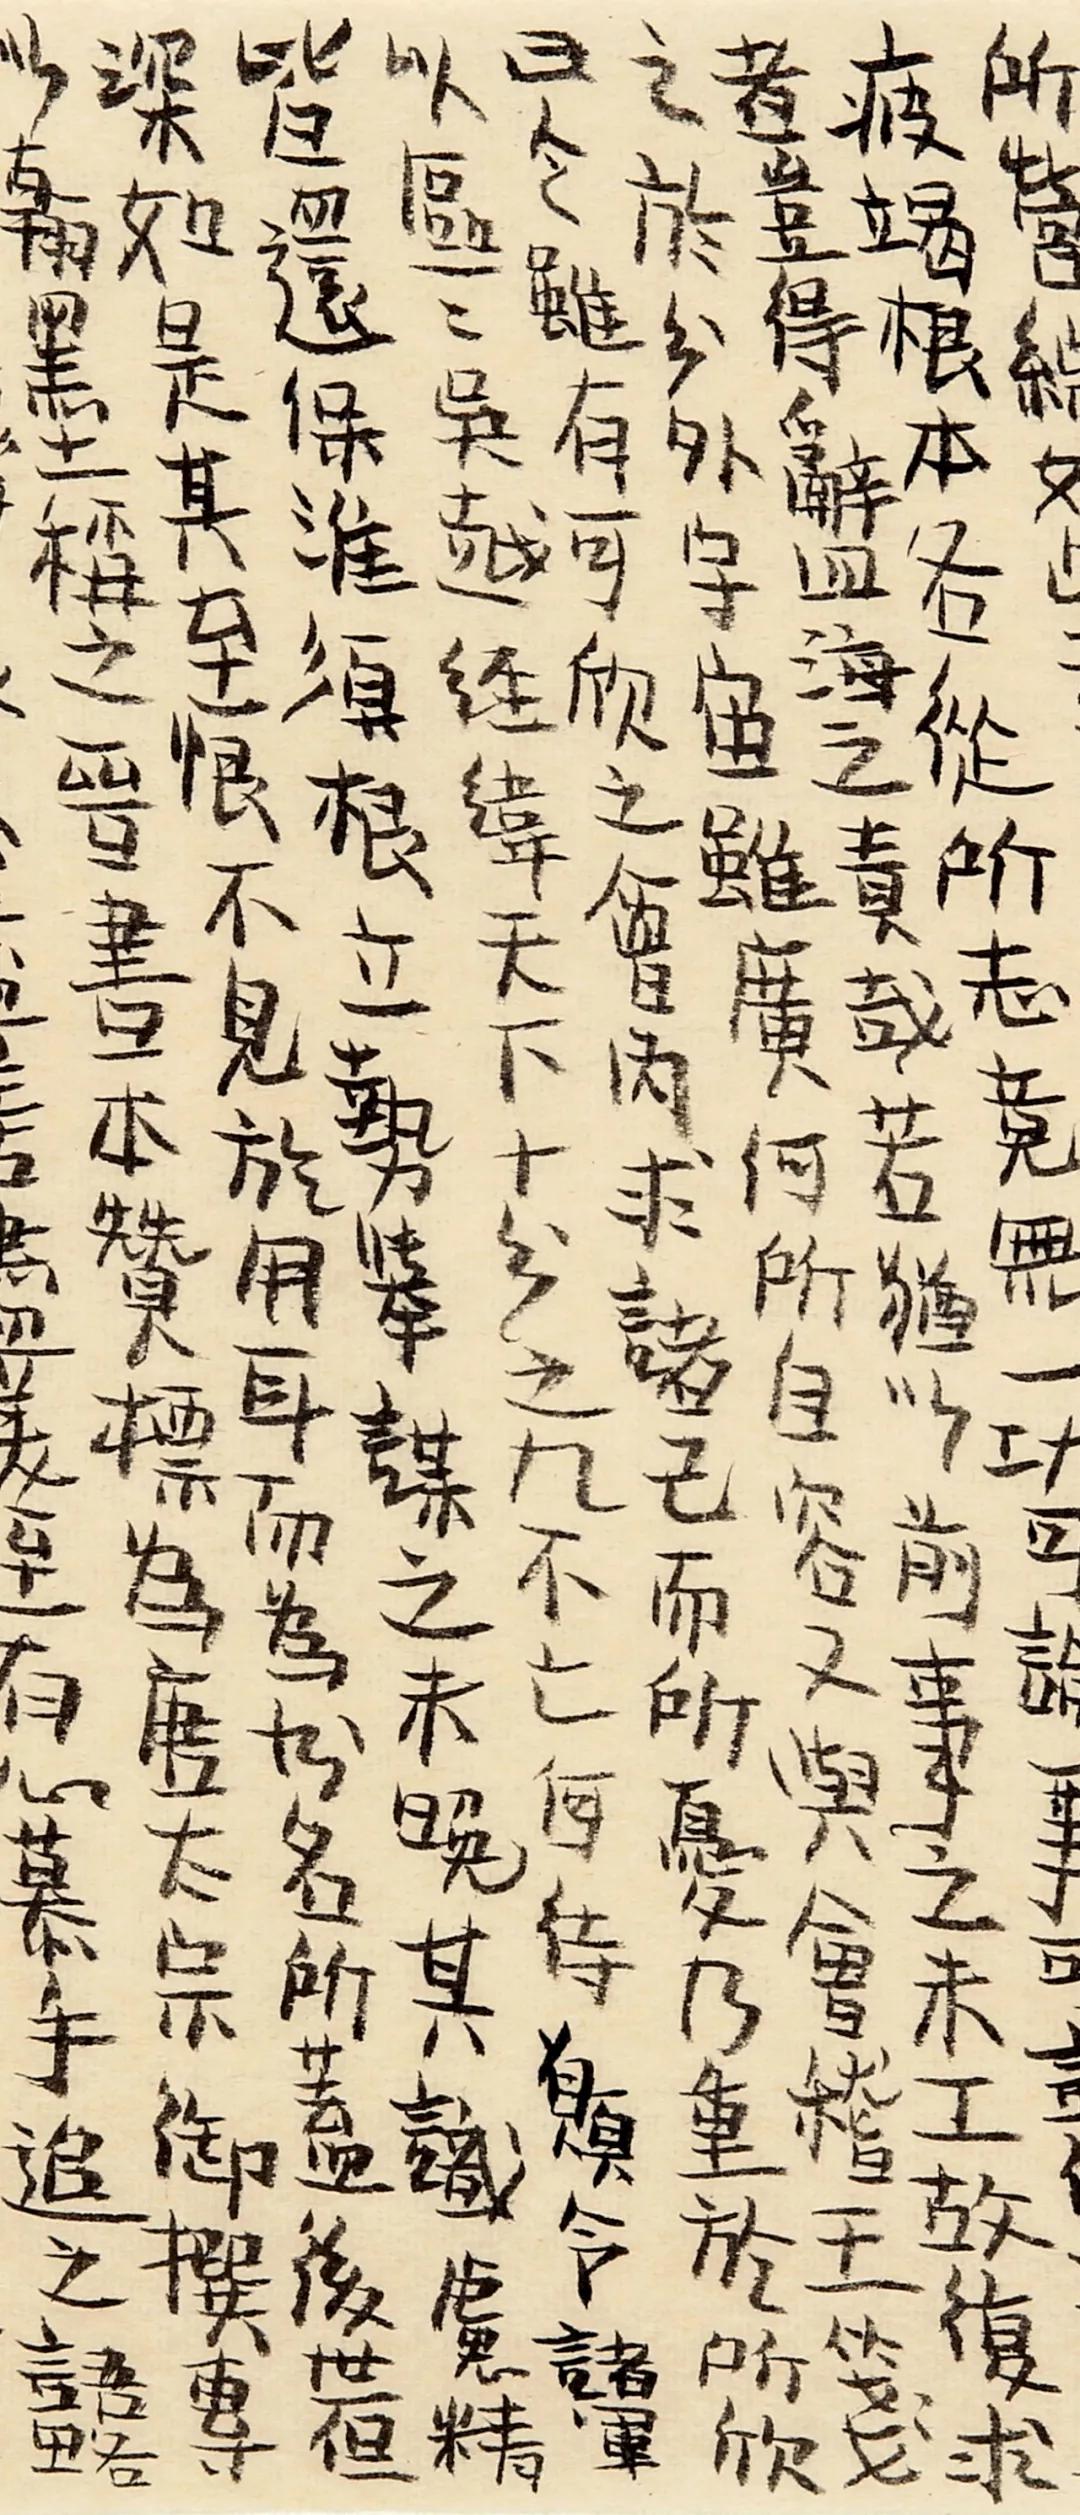 所營綜如此
疲竭根本各從所志竟無一功可論一事可記
者豈得辭四海之責哉若猶以前事之未工故復求
之於分外宇宙雖廣何所自容又與會稽王箋
曰今雖有可欣之會內求諸己而所憂乃重於所欣
以區〻吳越經緯天下十分之九不亡何待願令諸軍
皆還保淮須根立勢舉謀之未晚其識慮精
深如是其至恨不見於用耳而為書名所蓋後世但
以翰墨稱之晉書本贊標為唐太宗御撰專
有心慕手追之語略